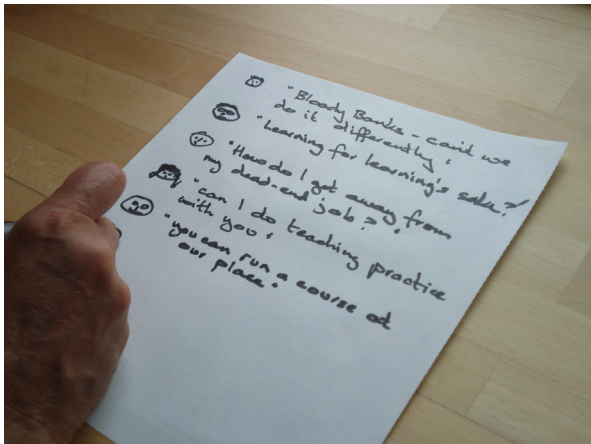 "Bloody Banks - can't we
do it differently,
"Learning for learning's sake!
"How do I get away from
my dead-end job?,
"can I do teaching practice
with you,
"you can run a course at
our place.